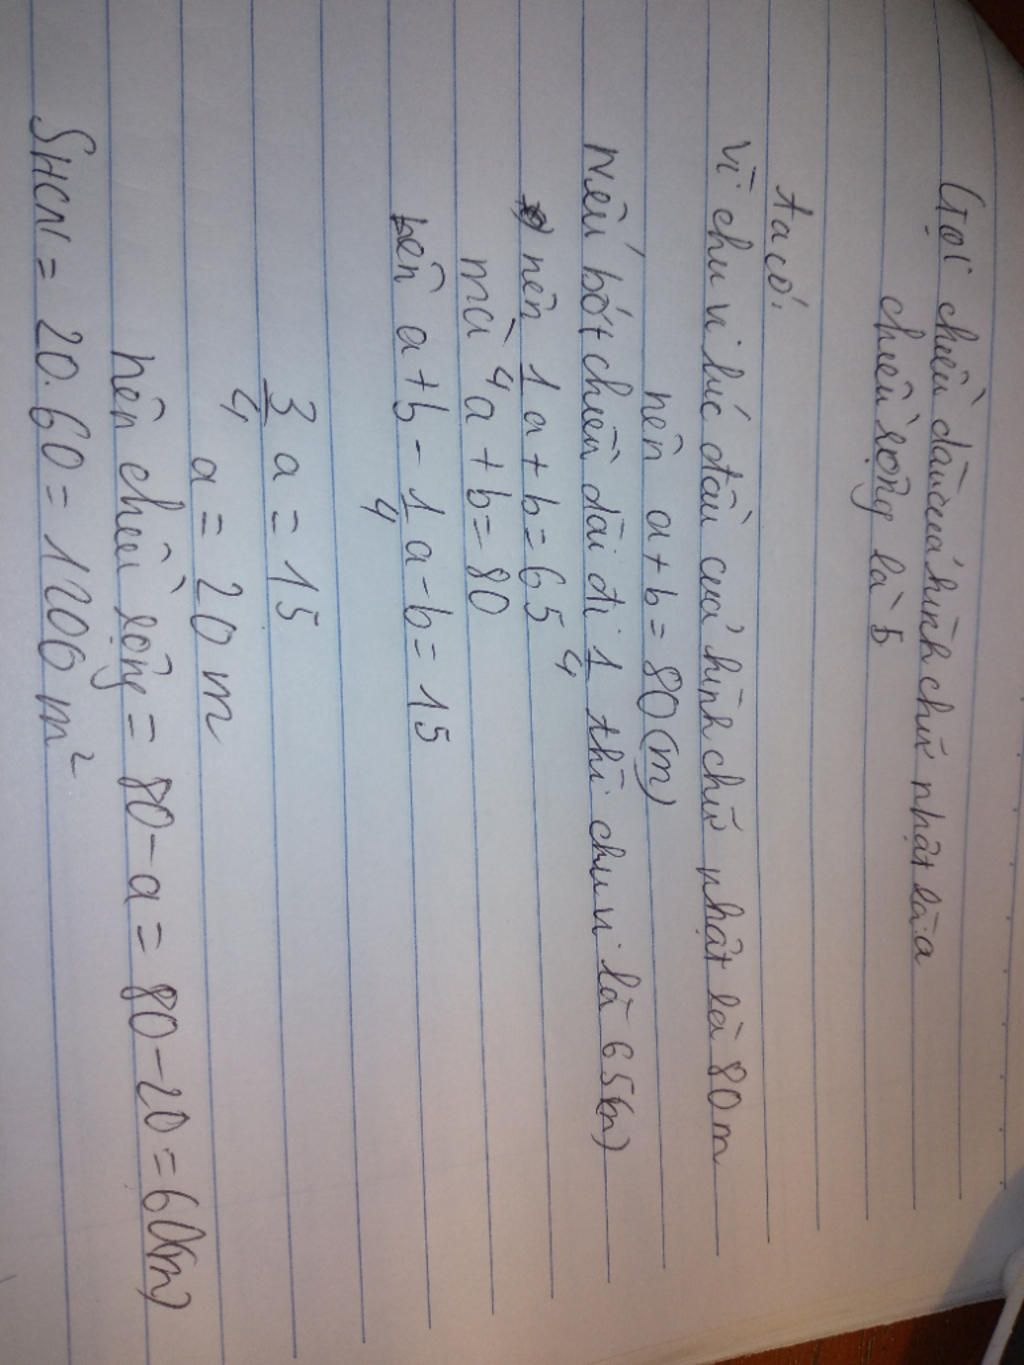 Gọi chiều dài của hình chữ nhật là a
chiều rộng là b
ta có:
Vì chu vi lúc đầu của hình chữ nhật là 80m
nên a+b=80(m)
Nếu bớt chiều dài đi 1/4 thì chu vi là 65(m)
nên 1/4 a+b=65
mà a+b=80
nên a+b-1/4 a-b=15
3/4 a=15
a=20m
nên chiều rộng=80-a=80-20=60(m)
SHCN=20.60=1200m²